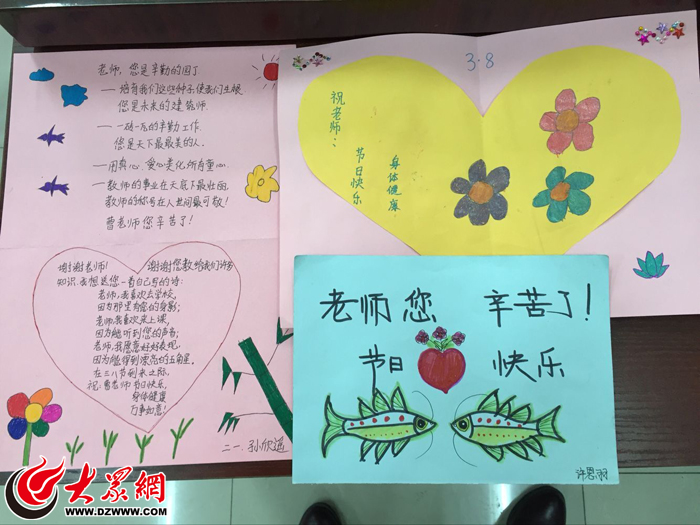 老师，您是辛勤的园丁
——培育我们这些种子使我们生根
您是未来的建筑师.
——一砖一瓦的辛勤工作.
您是天下最最美的人.
——用真心、爱心美化所有童心.
——教师的事业在天底下最壮丽.
教师的称号在人世间最可敬!
曹老师您辛苦了!
谢谢老师! 谢谢您教给我们许多
知识.我想送您一首自己写的诗:
老师,我喜欢去学校,
因为那里有您的身影;
老师,我喜欢来上课,
因为能听到您的声音;
老师,我愿意好好表现,
因为能得到漂亮的五角星.
在三八节到来之际,
祝:曹老师节日快乐,
身体健康
万事如意!
二一.孙欣遥
3·8
祝老师:
节日快乐
身体健康
老师您 辛苦了!
节日 快乐
许恩羽
大众网
WWW.DZWWW.COM